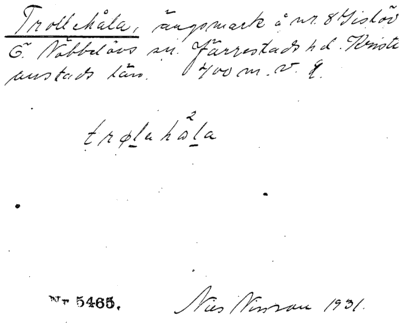 Trollehåla, ängsmark å nr. 8 Gislöv
Ö. Nöbbelövs sn. Järrestads hd. Kristi
anstads län. 400 m. v. g.
trolahåla
2
Nr 5465. Nils Nilsson 1931.